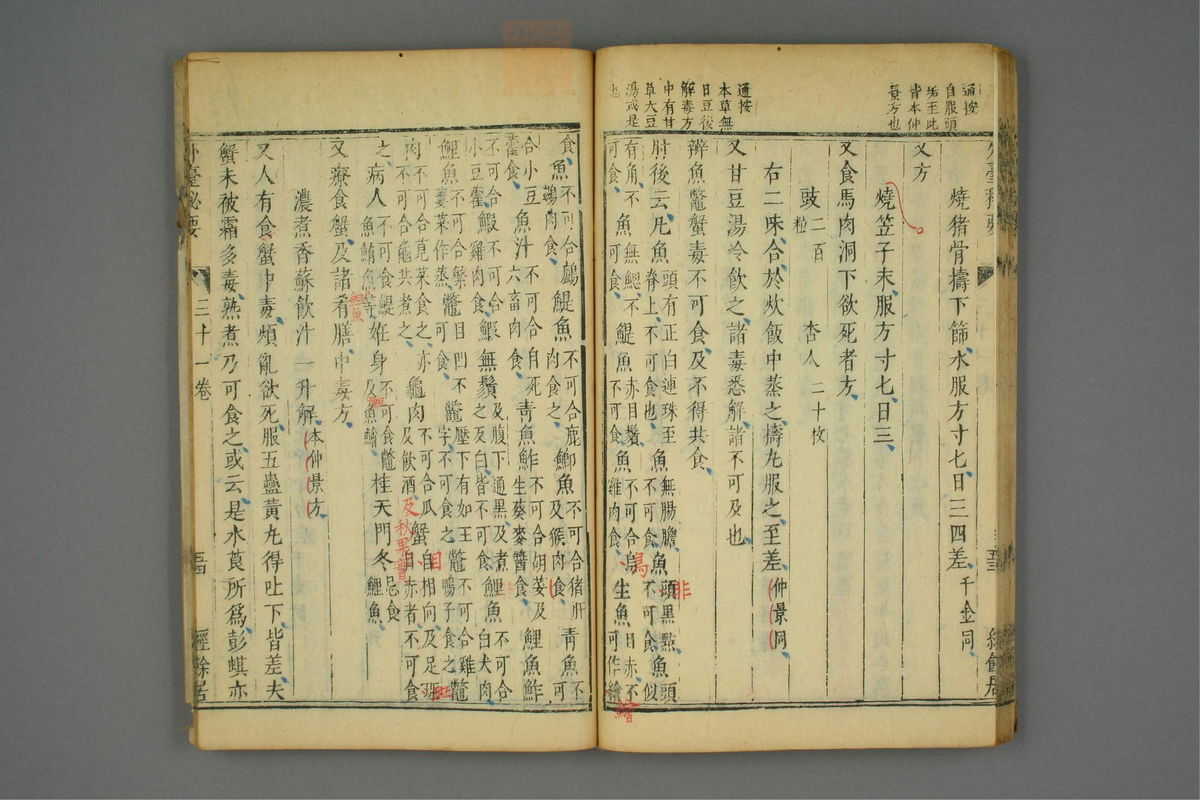 通按
自服頭
垢至此
皆本仲
景方也
燒猪骨擣下篩水服方寸匕日三四差千金同
又方
燒笠子末服方寸匕日三
又食馬肉洞下欲死者方
豉二百粒 杏人二十枚
右二味合於炊飯中蒸之擣丸服之至差仲景同
又甘豆湯冷飲之諸毒悉解諸不可及也
通按
本草無
日豆後
解毒方
中有甘
草大豆
湯或是
也
辨魚鼈蟹毒不可食及不得共食
肘後云凡魚頭有正白連珠至脊上不可食也魚無腸膽不可食魚頭黑點不可食魚頭似
有角不可食魚無鰓不可食鯷魚赤目鬚不可食魚不可合烏雞肉食生魚目赤不可作鱠
非
烏
鱠
食魚不可合鸕鷀肉食鯷魚不可合鹿肉食之鯽魚不可合猪肝及猴肉食青魚不可
合小豆藿食魚汁不可合自死六畜肉食青魚鮓不可合胡荽及生葵麥醬食鯉魚鮓
不可合小豆藿鰕不可合雞肉食鰕無鬚及腹下通黑及煮之反白皆不可食鯉魚不可合白犬肉
鯉魚不可合繁蔞菜作蒸鼈目凹不可食鼈壓下有如王字不可食之鼈不可合雞鴨子食之鼈
肉不可合莧菜食之亦不可合龜共煮之龜肉不可合瓜及飲酒蟹目相向及足斑目赤者不可食
及秋果食
目
班
之病人不可食鯷魚鮪魚等妊身不可食鼈及魚鱠桂天門冬忌食鯉魚
鮰魚
又療食蟹及諸肴膳中毒方
濃煮香蘇飲汁一升解本仲景方
又人有食蟹中毒煩亂欲死服五蠱黃丸得吐下皆差夫
蟹未被霜多毒熟煮乃可食之或云是水莨所爲彭蜞亦
外臺秘要
三十一卷
五四
經餘居